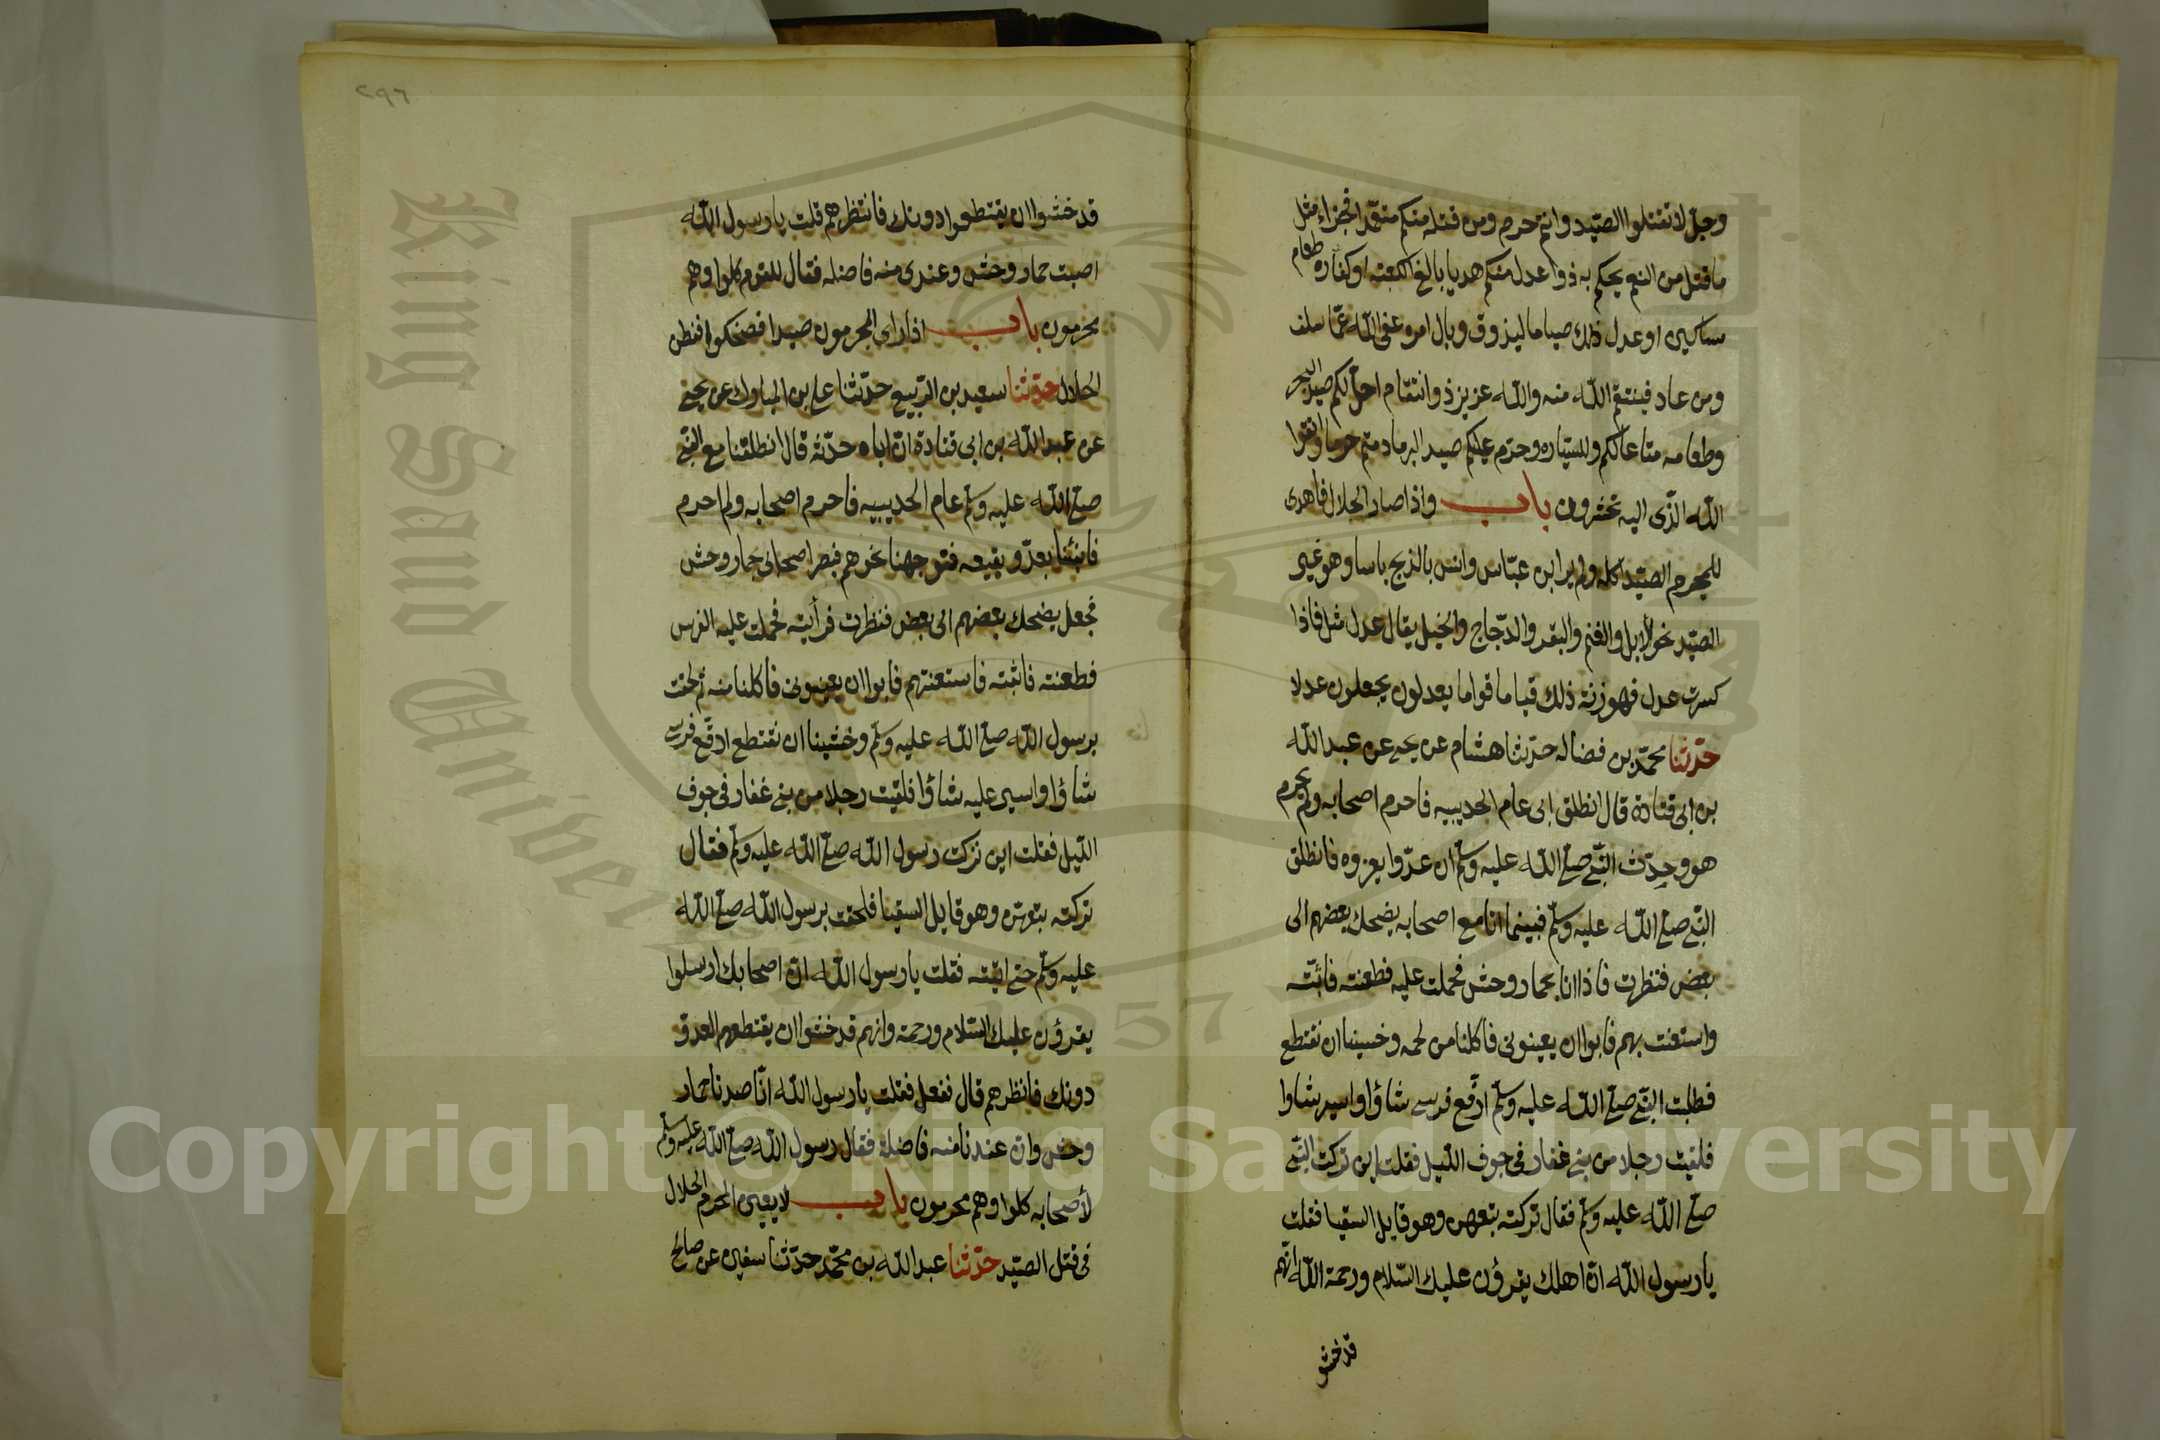 وجلّ لا تقتلوا الصّيد وانتم حرم ومن قتله منكم متعمّدا فجزاء مثل
ما قتل من النعم يحكم به ذوا عدل منكم هديا بالغ الكعبة او كفاره طعام
مساكين او عدل ذلك صياما ليذوق وبال امره عفى الله عمّا سلف
ومن عاد فينتقم الله منه والله عزيز ذو انتقام احلّ لكم صيد البحر
وطعامه متاعا لكم وللسيّاره وحرّم عليكم صيد البر ما دمتم حرما واتقوا
الله الذّى اليه تحشرون باب واذا صاد الحلال فاهدى
للمحرم الصيّد اكله ولم ير ابن عبّاس وانس بالذبح باسا وهو غير
الصيّد نحو الابل والغنم والبقر والدّجاج والخيل يقال عدل مثل فاذا
كسرت عدل فهو زنة ذلك قياما قواما يعدلون يجعلون عدلا
حدّثنا محمّد بن فضاله حدّثنا هشام عن يحيى عن عبد الله
بن ابى قتادة قال انطلق ابى عام الحديبيه فاحرم اصحابه ولم يحرم
هو وحدّث النّبى صلّى الله عليه وسلّم ان عدّوا يغزوه فانطلق
النّبى صلّى الله عليه وسلّم فبينما انا مع اصحابه يضحك بعضهم الى
بعض فنظرت فاذا انا بحمار وحش فحملت عليه فطعنته فاثبّته
واستعنت بهم فابوا ان يعينونى فاكلنا من لحمه وخشينا ان نقتطع
فطلبت النّبى صلّى الله عليه وسلّم ارّفع فرسى شاؤا واسير شاوا
فلقيت رجلا من بنى غفار فى جوف اللّيل فقلت اين تركت النّبى
صلّى الله عليه وسلّم فقال تركته بتعهن وهو قايل السقيا فقلت
يا رسول الله انّ اهلك يقرؤن عليك السّلام ورحمة الله انّهم
قد خشو
٢٩٦
قد خشوا ان يقتطعوا دونك فانتظرهم قلت يا رسول الله
اصبت حمار وحش وعندى منه فاضله فقال للقوم كلوا وهم
محرمون باب اذا راى المحرمون صيدا فضحكوا ففطن
الحلال حدّثنا سعيد بن الرّبيع حدّثنا على بن المبارك عن يحيى
عن عبد الله بن ابى قتادة انّ اباه حدّثه قال انطلقنا مع النّبى
صلّى الله عليه وسلّم عام الحديبيه فاحرم اصحابه ولم احرم
فانبئنا بعدّو بغيقه فتوجهنا نحوهم فبصر اصحابى بحمار وحش
فجعل يضحك بعضهم الى بعض فنظرت فرأيته فحملت عليه الفرس
فطعنته فاثبته فاستعنتهم فابوا ان يعينونى فاكلنا منه ثم لحقت
برسول الله صلّى الله عليه وسلّم وخشينا ان نقتطع ارفّع فرسى
شاؤا واسير عليه شاؤا فلقيت رجلا من بنى غفار فى جوف
اللّيل فقلت اين تركت رسول الله صلّى الله عليه وسلّم فقال
تركته بتعهن وهو قايل السقيا فلحقت برسول الله صلّى الله
عليه وسلّم حتى اتيته فقلت يا رسول الله انّ اصحابك ارسلوا
يقرؤن عليك السّلام ورحمة وانهم قد خشوا ان يقتطعهم العدوّ
دونك فانظرهم قال ففعل فقلت يا رسول الله انّا صدنا حمار
وحش وان عندنا منه فاضلة فقال رسول الله صلّى الله عليه وسلّم
لأصحابه كلوا وهم محرمون باب لا يعين المحرم الحلال
فى قتل الصيّد حدّثنا عبد الله بن محمّد حدّثنا سفين عن صالح
King Saud University
1957
Copyright © King Saud University